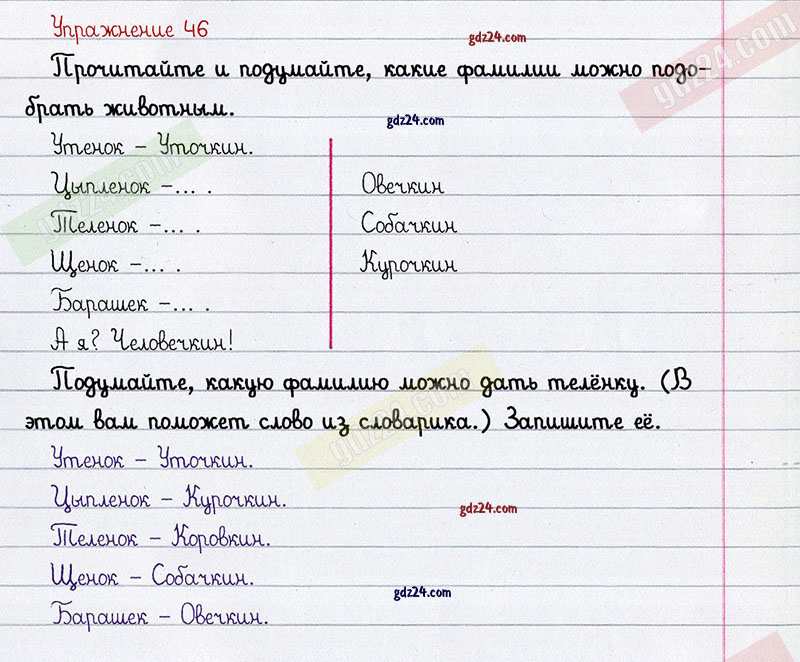 Упражнение 46
gdz24.com
Прочитайте и подумайте, какие фамилии можно подо-
брать животным.
gdz24.com
Утенок – Уточкин.
Цыпленок –... .
Овечкин
Теленок –... .
Собачкин
Щенок –... .
Курочкин
Барашек –... .
А я? Человечкин!
Подумайте, какую фамилию можно дать телёнку. (В
этом вам поможет слово из словарика.) Запишите её.
Утенок – Уточкин.
Цыпленок – Курочкин.
gdz24.com
Теленок – Коровкин.
Щенок – Собачкин.
gdz24.com
Барашек – Овечкин.
gdz24.com
gdz24.com
gdz24.com